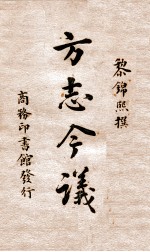 黎錦熙撰
方志今議
商務印書館發行